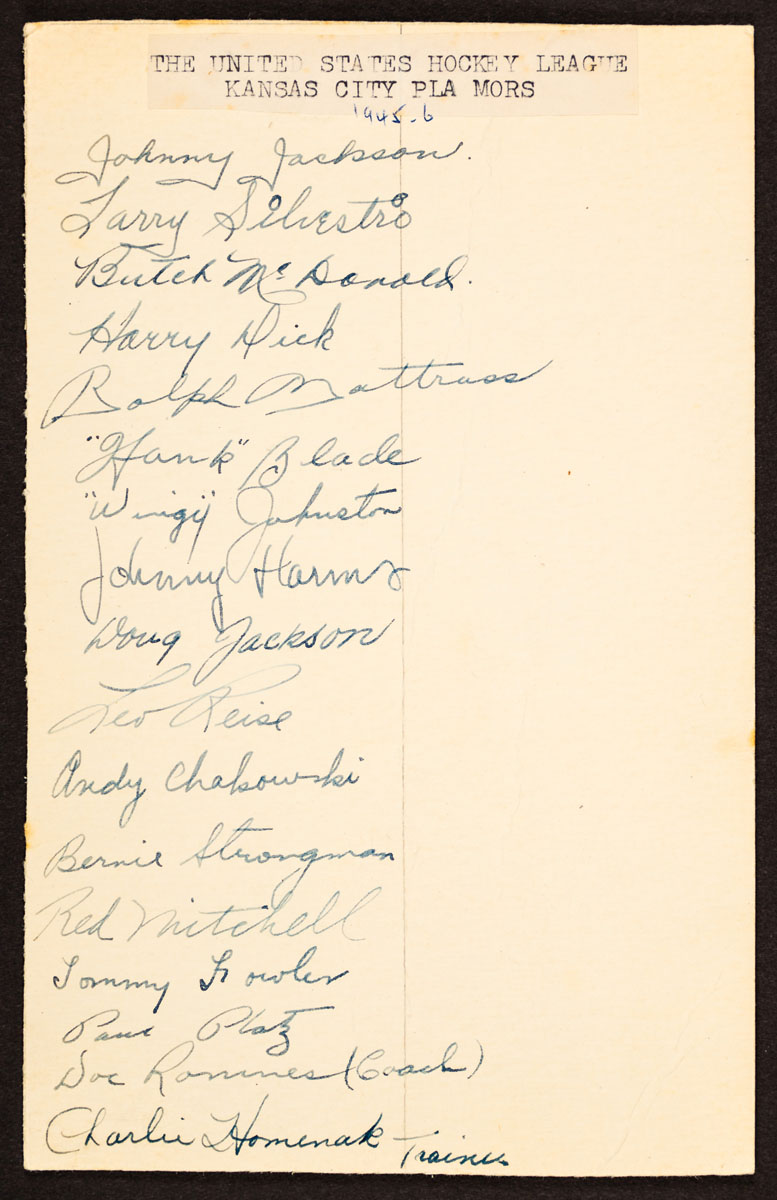 THE UNITED STATES HOCKEY LEAGUE
KANSAS CITY PLA MORS
1945-6
Johnny Jackson.
Larry Silvestro
Butch McDonald.
Harry Dick
Ralph Mattrass
"Hank" Blade
"Wingy" Johnston
Johnny Harms
Doug Jackson
Leo Reise
Andy Chakowski
Bernie Strongman
Red Mitchell
Tommy Fowler
Paul Platz
Doc Romnes (Coach)
Charlie Homenak Trainer